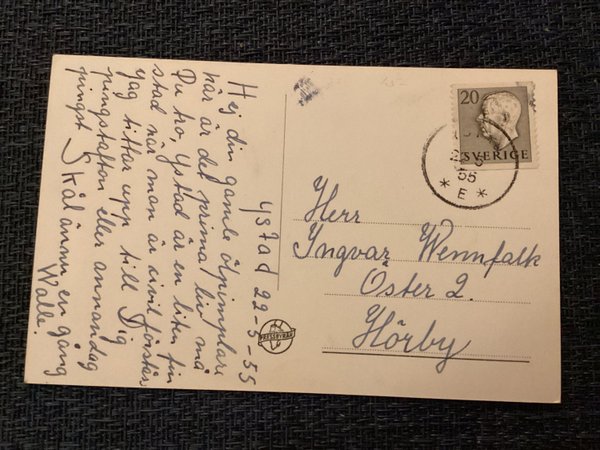 Ystad 22-5-55
Hej din gamle ölpimplare
här är det prima liv må
Du tro, Ystad är en liten fin
stad när man är civil förstår
jag tittar upp till Dig
pingstafton eller annandag
pingst Skål ännu en gång
Walle.
20
SVERIGE
55
* E *
Herr
Ingvar Wennfalk
Öster 2.
Hörby
PRESSBYRÅN